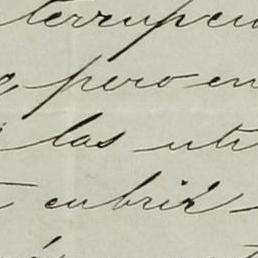 terrupcu
pero en
las uti
cubrir